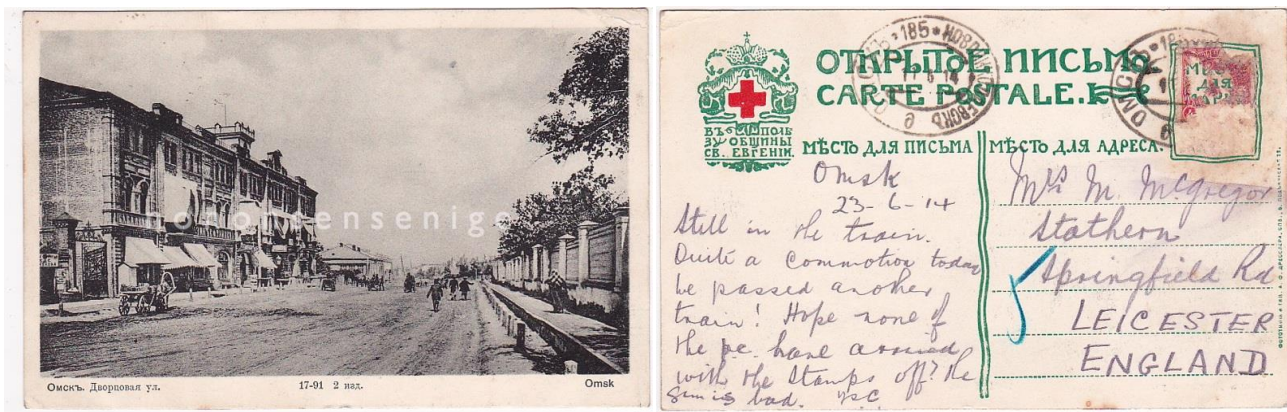 honohrensenigo
Омскъ. Дворцовая ул.
17-91 2 изд.
Omsk
ОТКРЫТОЕ ПИСЬМО
CARTE POSTALE.
ВЪ ПОЛЬ
ЗУ ОБЩИНЫ
СВ. ЕВГЕНІИ.
МѢСТО ДЛЯ ПИСЬМА
МѢСТО ДЛЯ АДРЕСА.
МѢСТО
ДЛЯ
МАРКИ
ОМСКЪ * 185 * НОВОНИКОЛАЕВСКЪ
ОМСКЪ * 185
Omsk
23-6-14
Still in the train.
Quite a commotion today
we passed another
train! Hope none of
the pc. have arrived
with the stamps off? the
gum is bad.
Mrs M. McGregor
Stathern
Springfield Rd
LEICESTER
ENGLAND